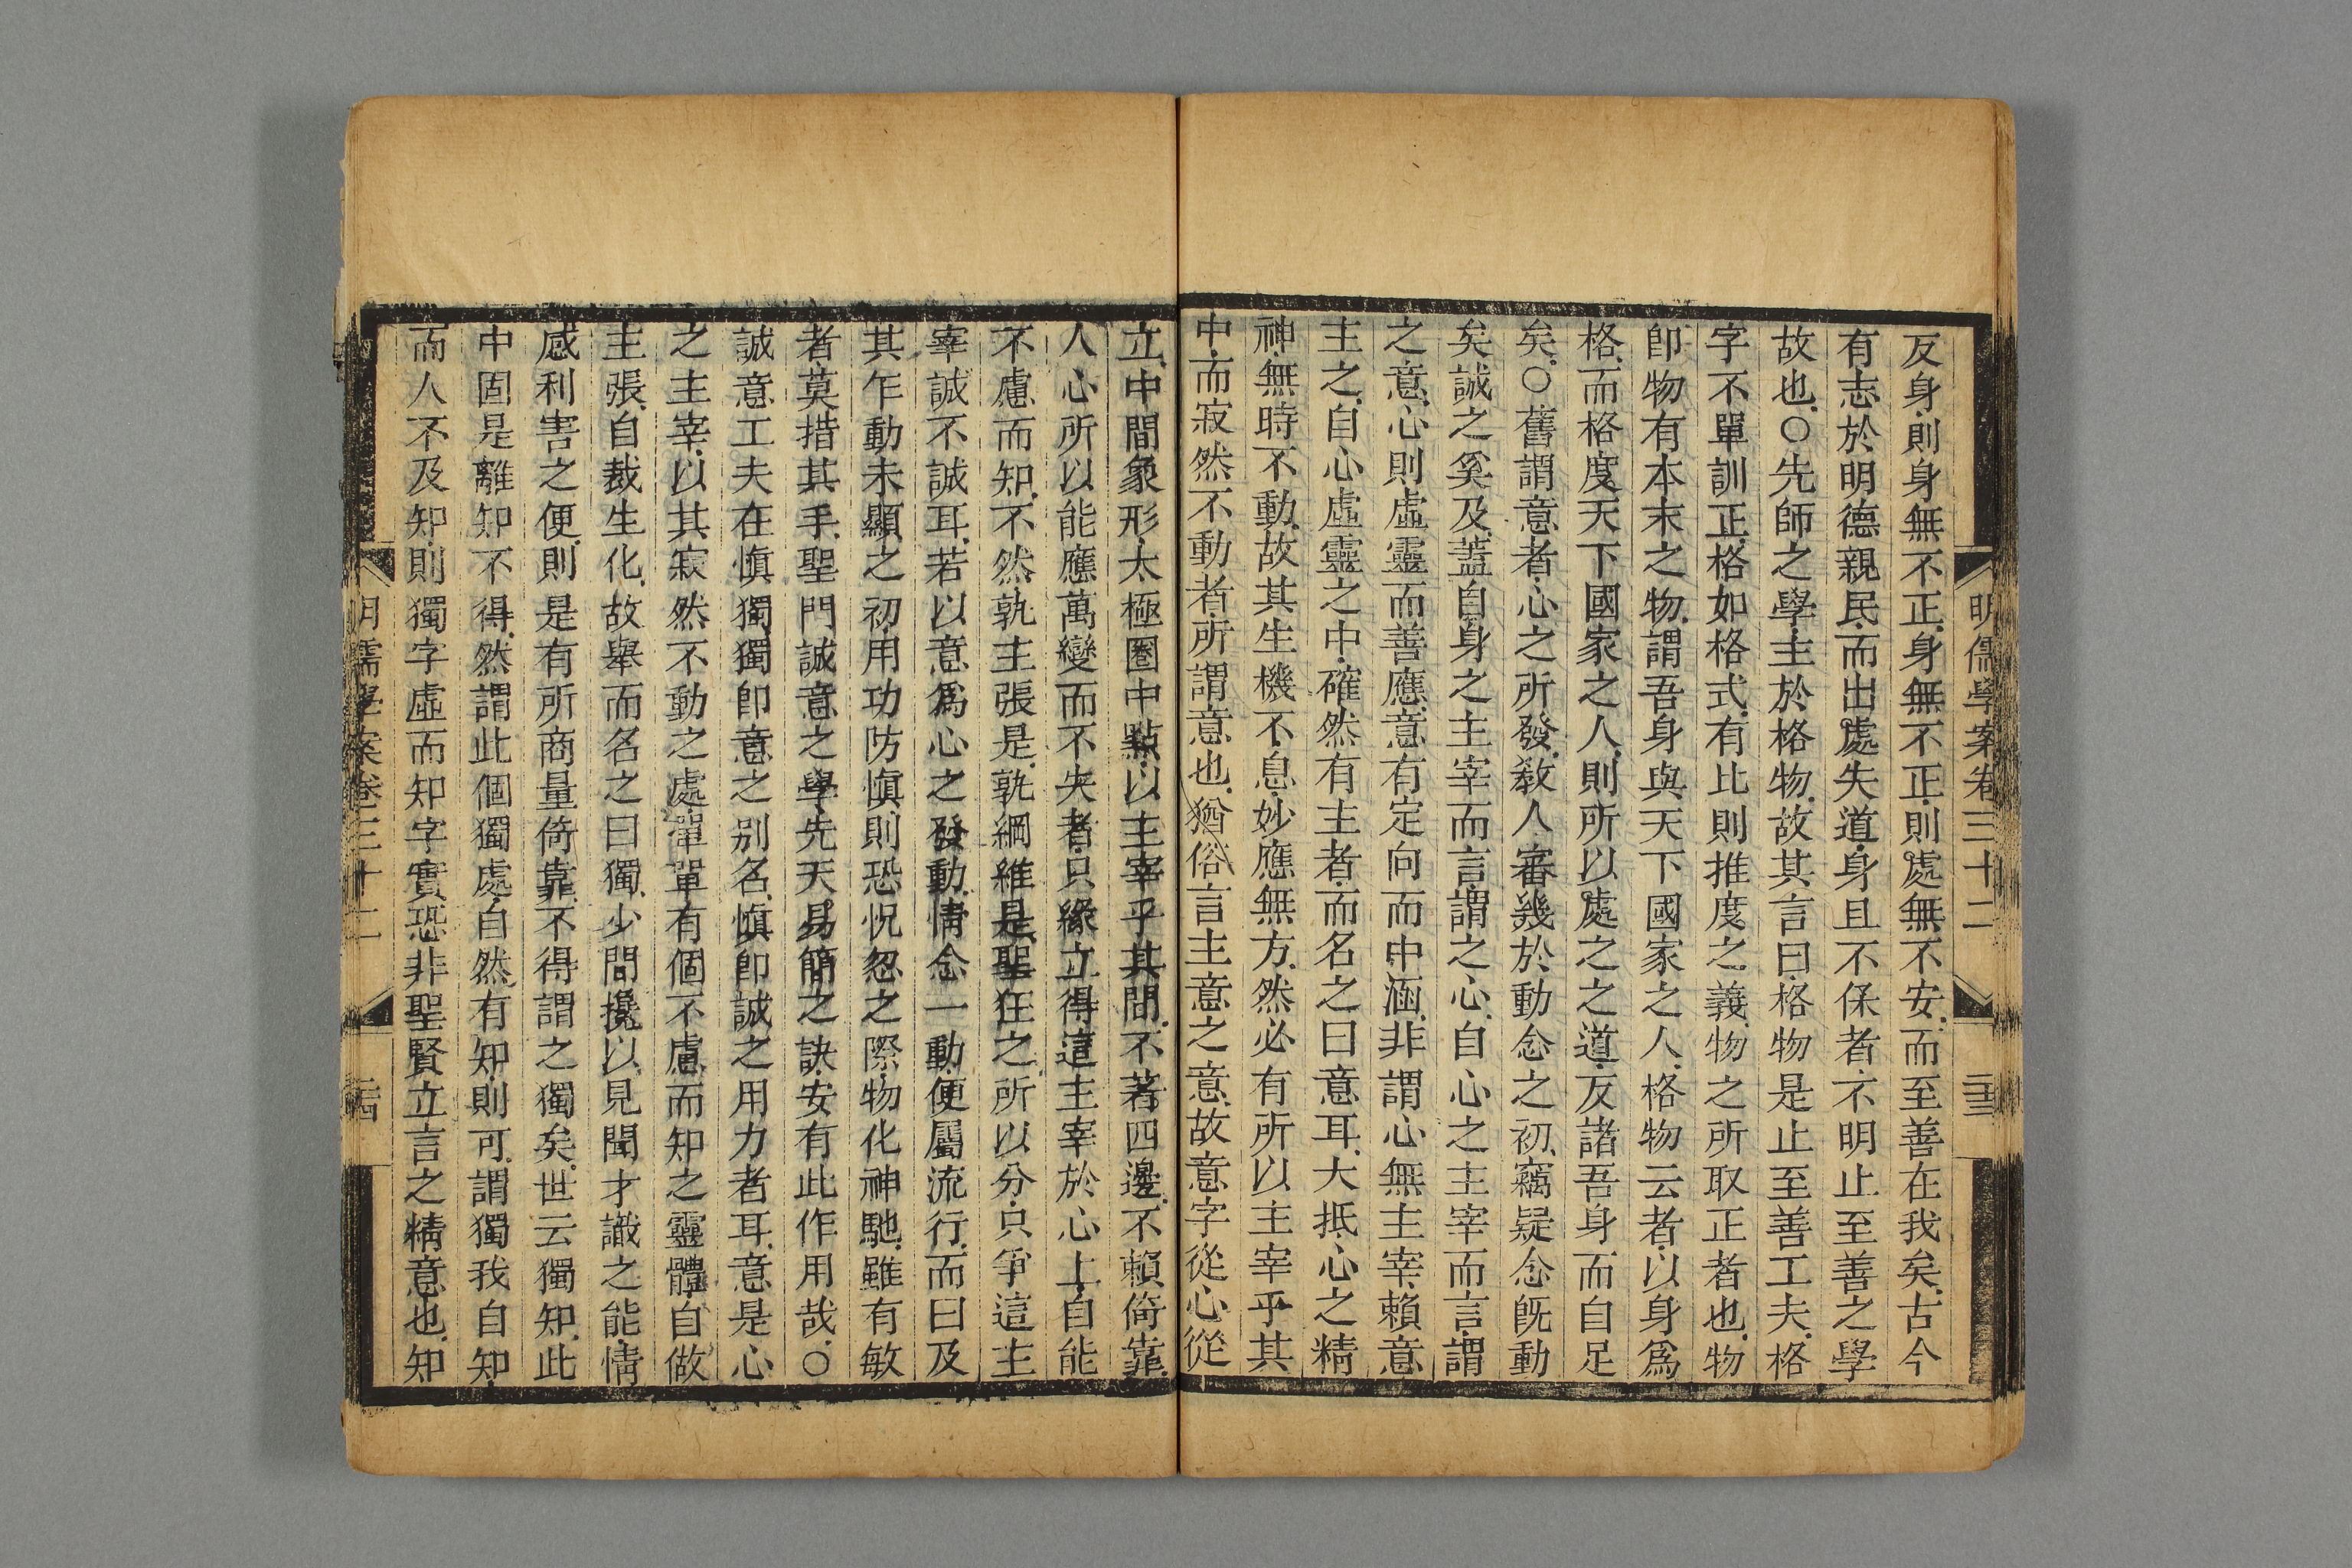 明儒學案卷三十二
二十三
反身則身無不正身無不正則處無不安而至善在我矣古今
有志於明德親民而出處失道身且不保者不明止至善之學
故也○先師之學主於格物故其言曰格物是止至善工夫格
字不單訓正格如格式有比則推度之義物之所取正者也物
卽物有本末之物謂吾身與天下國家之人格物云者以身爲
格而格度天下國家之人則所以處之之道反諸吾身而自足
矣○舊謂意者心之所發敎人審幾於動念之初竊疑念旣動
矣誠之奚及蓋自身之主宰而言謂之心自心之主宰而言謂
之意心則虛靈而善應意有定向而中涵非謂心無主宰賴意
主之自心虛靈之中確然有主者而名之曰意耳大抵心之精
神無時不動故其生機不息妙應無方然必有所以主宰乎其
中而寂然不動者所謂意也猶俗言主意之意故意字從心從
立中間象形太極圈中一點以主宰乎其間不著四邊不賴倚靠
人心所以能應萬變而不失者只緣立得這主宰於心上自能
不慮而知不然孰主張是孰綱維是聖狂之所以分只爭這主
宰誠不誠耳若以意爲心之發動情念一動便屬流行而曰及
其乍動未顯之初用功防愼則恐怳忽之際物化神馳雖有敏
者莫措其手聖門誠意之學先天易簡之訣安有此作用哉○
誠意工夫在愼獨獨卽意之別名愼卽誠之用力者耳意是心
之主宰以其寂然不動之處單單有個不慮而知之靈體自做
主張自裁生化故舉而名之曰獨少間攙以見聞才識之能情
感利害之便則是有所商量倚靠不得謂之獨矣世云獨知此
中固是離知不得然謂此個獨處自然有知則可謂獨我自知
而人不及知則獨字虛而知字實恐非聖賢立言之精意也知
明儒學案卷三十二
二十四